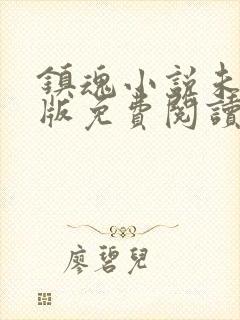 鎮魂小說未
版免費閱讀
廖碧兒